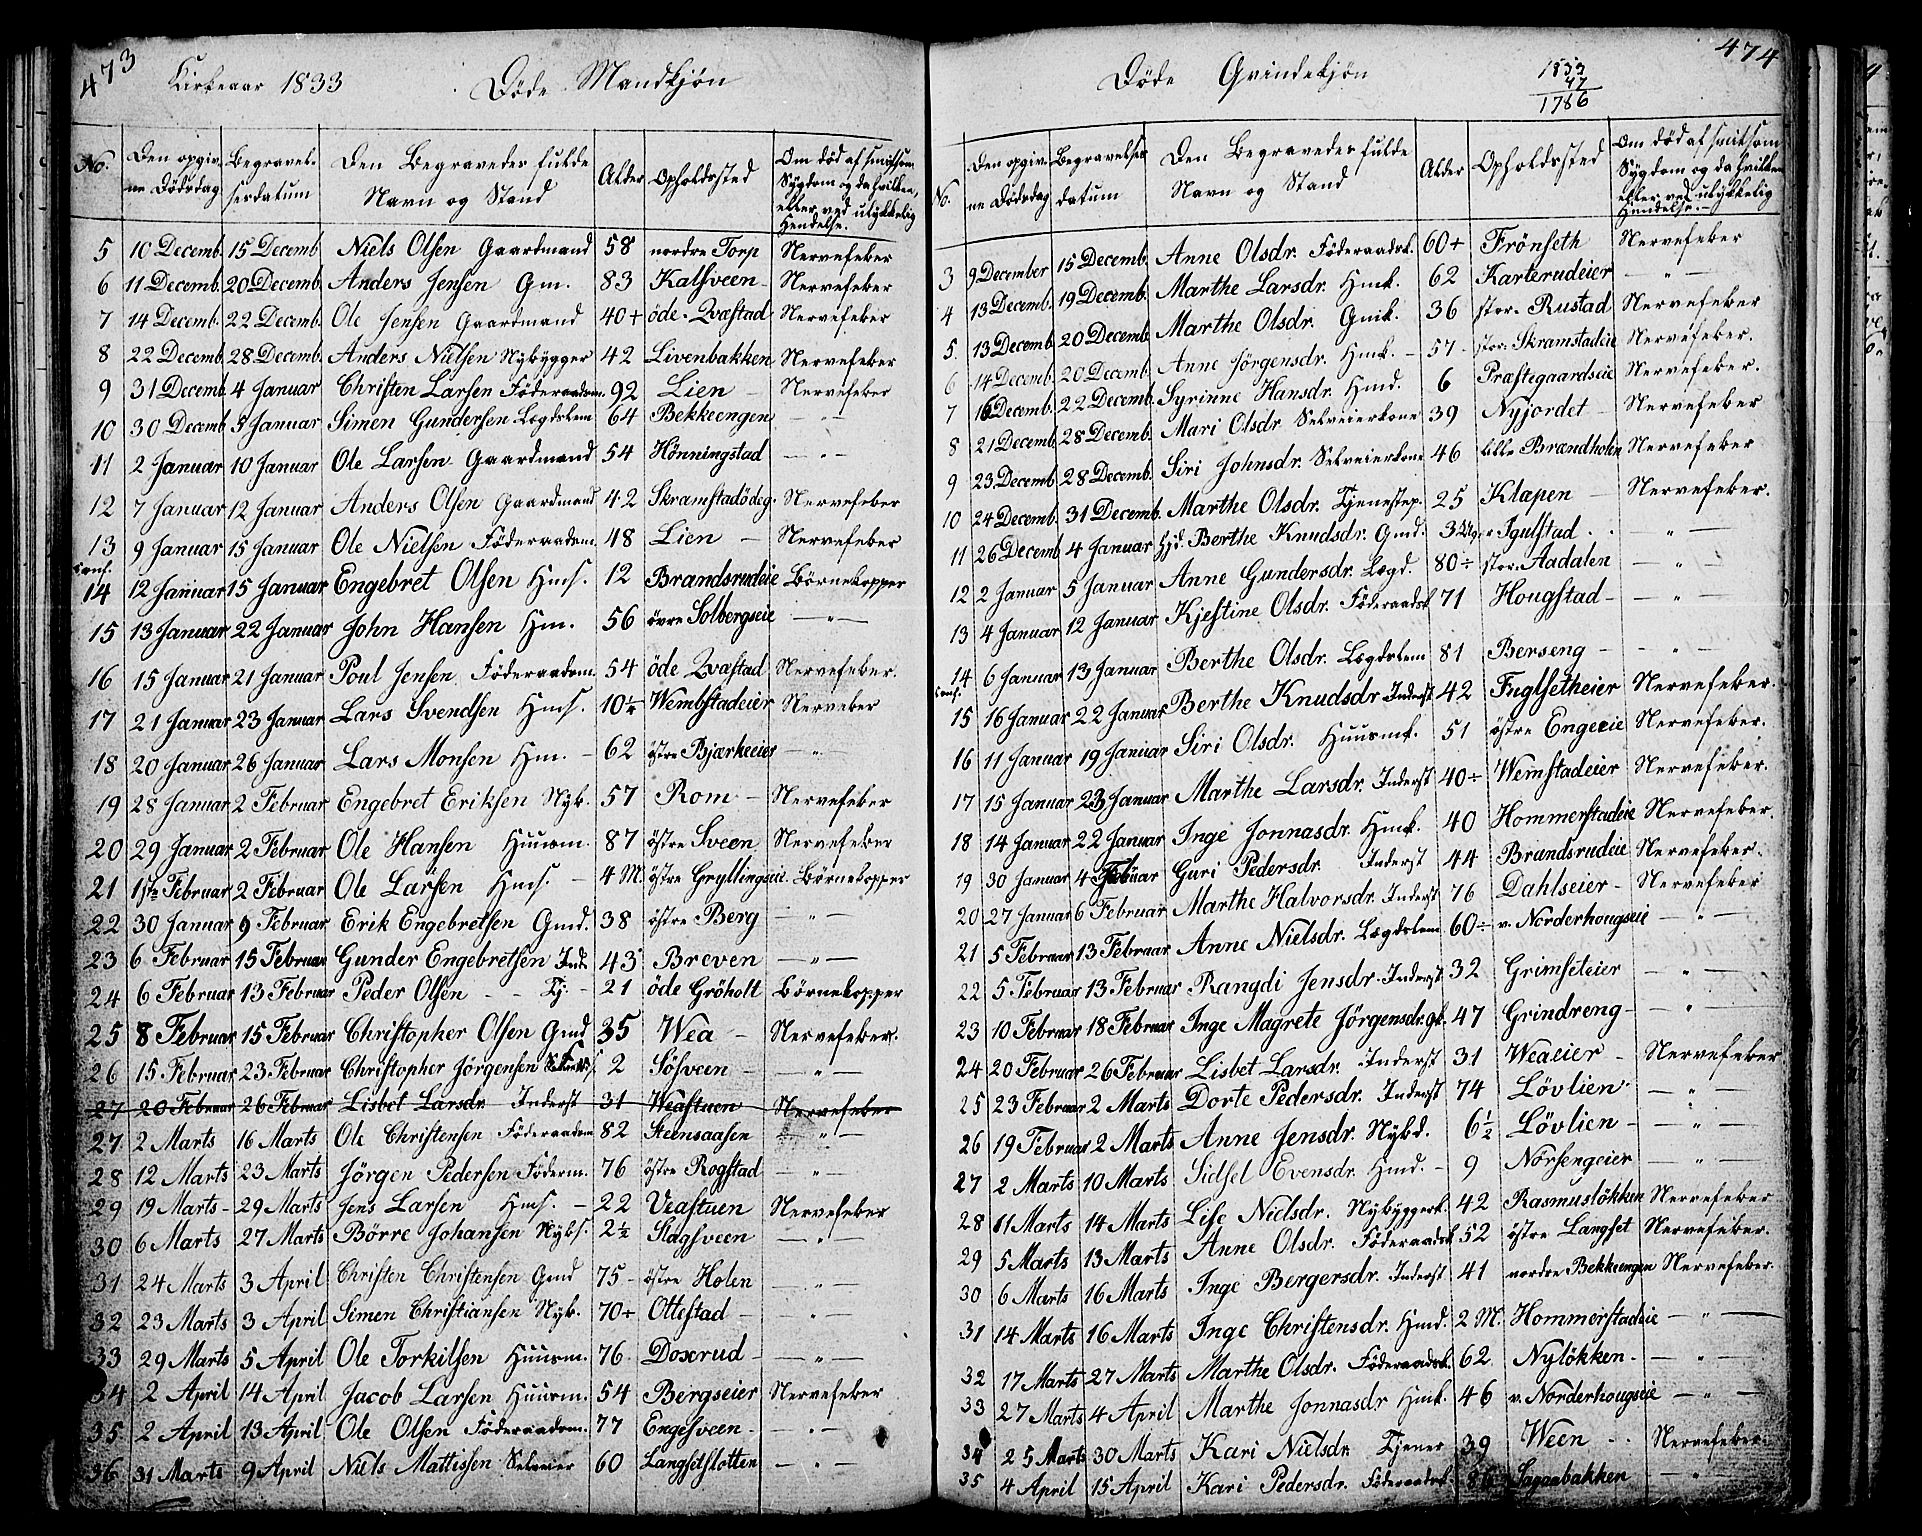 473
Kirkeaar 1833 Døde Mandkjøn
No. Den opgivne Dødsdag Begravelsesdatum Den Begravedes fulde Navn og Stand Alder Opholdssted Om død af smitsom Sygdom og da hvilken, eller ved ulykkelig Hendelse.
5 10 Decemb. 15 Decemb Niels Olsen Gaardmand 58 nordre Torp Nervefeber
6 11 Decemb. 20 Decemb Anders Jensen Gm. 83 Kalsveen Nervefeber
7 14 Decemb. 22 Decemb. Ole Jensen Gaardmand 40+ öde Qvæstad Nervefeber
8 22 Decemb. 28 Decemb. Anders Nielsen Nybygger 42 Livenbakken Nervefeber
9 31 Decemb 4 Januar Christen Larsen Föderaadsm. 92 Lien Nervefeber
10 30 Decemb 5 Januar Simen Gundersen Lægdslem 64 Bekkeengen — " —
11 2 Januar 10 Januar Ole Larsen Gaardmand 54 Hönningstad — " —
12 7 Januar 12 Januar Anders Olsen Gaardmand 42 Skramstadödeg. Nervefeber
13 9 Januar 15 Januar Ole Nielsen Föderaadsm. 48 Lien — Nervefeber
conf.
14 12 Januar 15 Januar Engebret Olsen Hms. 12 Brandsrudeie Börnekopper
15 13 Januar 22 Januar John Hansen Hm. 56 övre Solbergseie — " —
16 15 Januar 21 Januar Poul Jensen Föderaadsm. 54 öde Qvæstad Nervefeber.
17 21 Januar 23 Januar Lars Svendsen Hms. 10½ Wembstadeier Nerveber
18 20 Januar 26 Januar Lars Monsen Hm. 62 östre Bjærkeeier — " —
19 28 Januar 2 Februar Engebret Eriksen Nyb. 57 Rom — Nervefeber
20 29 Januar 2 Februar Ole Hansen Huusm. 87 östre Sveen Nervefeber
21 1ste Februar 2 Februar Ole Larsen Hms. 4 M. östre Gryllingseie Börnekopper
22 30 Januar 9 Februar Erik Engebretsen Gmd. 38 östre Berg — " —
23 6 Februar 15 Februar Gunder Engebretsen Ind. 43 Breven — " —
24 6 Februar 13 Februar Peder Olsen Tj. 21 öde Gröholt Börnekopper
25 8 Februar 15 Februar Christopher Olsen Gmd 35 Wea — Nervefeber.
26 15 Februar 23 Februar Christopher Jörgensen 2 Sösveen — " —
27 20 Februar 26 Februar Lisbet Larsdr. Inderst 31 Weastuen Nervefeber
27 2 Marts 16 Marts Ole Christensen Föderaadsm 82 Steensaasen — " —
28 12 Marts 23 Marts Jörgen Pedersen Föderm. 76 östre Rogstad — "
29 19 Marts 29 Marts Jens Larsen Hms. 22 Veastuen Nervefeber
30 6 Marts 27 Marts Börre Johansen Nybs. 2½ Slagsveen — " —
31 24 Marts 3 April Christen Christensen Gmd 75 östre Holen — " —
32 23 Marts 3 April Simen Christiansen Nyb. 70+ Ottestad — " —
33 29 Marts 5 April Ole Torkilsen Huusm. 76 Doxrud — " —
34 2 April 14 April Jacob Larsen Huusm. 54 Bergseier Nervefeber
35 2 April 13 April Ole Olsen Föderaadsm. 77 Engesveen — " —
36 31 Marts 9 April Niels Mattissen Selveier 60 Langsetslotten — " —
474
Døde Qvindekjøn
1833
47
1786
No. Den opgivne Dødsdag Begravelsesdatum Den Begravedes fulde Navn og Stand Alder Opholdssted Om død af smitsom Sygdom og da hvilken eller ved ulykkelig Hendelse.
3 9 December 15 Decemb. Anne Olsdr. Föderaadsk. 60+ Frönseth Nervefeber
4 13 Decemb. 19 Decemb. Marthe Larsdr. Hmk. 62 Karterudeier — " —
5. 13 Decemb 20 Decemb. Marthe Olsdr. Gmk. 36 stor. Rustad Nervefeber
6 14 Decemb. 20 Decemb Anne Jörgensdr. Hmk. 57 stor. Skramstadeie Nervefeber.
7 16 Decemb. 22 Decemb. Syrinne Hansdr. Hmd. 6 Præstegaardseie Nervefeber.
8 21 Decemb 28 Decemb. Mari Olsdr Selveierkone 39 Nyjordet Nervefeber
9 23 Decemb 28 Decemb. Siri Johnsdr. Selveierkone 46 lille Brændholen Nervefeber
10 24 Decemb. 31 Decemb. Marthe Olsdr. Tjenestep. 25 Klæpen Nervefeber.
11 26 Decemb 4 Januar hjd. Berthe Knudsdr. Gmd. 3 Ug. Igulstad — " —
12 2 Januar 5 Januar Anne Gundersdr. Lægd. 80÷ stor. Aadalen — " —
13 4 Januar 12 Januar Kjestine Olsdr. Föderaadsk 71 Hougstad — " —
14 6 Januar 13 Januar Berthe Olsdr. Lægdslem 81 Berseng — " —
conf.
15 16 Januar 22 Januar Berthe Knudsdr Inderst 42 Fuglsetheier Nervefeber.
16 11 Januar 19 Januar Siri Olsdr. Huusmk. 51 östre Engeeie Nervefeber.
17 15 Januar 23 Januar Marthe Larsdr. Inderst 40÷ Wemstadeier Nervefeber.
18 14 Januar 22 Januar Inge Jonnasdr. Hmk. 40 Hommerstadeie Nervefeber.
19 30 Januar 4 Februar Guri Pedersdr. Inderst 44 Brandsrudeie Nervefeber.
20 27 Januar 6 Februar Marthe Halvorsdr. Inderst 76 Dahlseier Nervefeber
21 5 Februar 13 Februar Anne Nielsdr. Lægdslem 60÷ v. Norderhougseie — " —
22 5 Februar 13 Februar Rangdi Jensdr. Inderst 32 Grimseteier — " —
23 10 Februar 18 Februar Inge Magrete Jörgensdr. gk. 47 Grindreng — " —
24 20 Februar 26 Februar Lisbet Larsdr. Inderst 31 Weaeier Nervefeber
25 23 Februar 2 Marts Dorte Pedersdr. Inderst 74 Lövlien — " —
26 19 Februar 2 Marts Anne Jensdr. Nybd. 6½ Lövlien — " —
27 2 Marts 10 Marts Sidsel Evensdr. Hmd. 9 Norsengeier — " —
28 11 Marts 14 Marts Lise Nielsdr. Nybyggerk. 42 Rasmuslökken Nervefeber
29 5 Marts 13 Marts Anne Olsdr. Föderaadsk 52 östre Langset Nervefeber.
30 6 Marts 16 Marts Inge Bergersdr. Inderst 41 nordre Bekkeengen Nervefeber.
31 14 Marts 16 Marts Inge Christensdr. Hmd. 2 M. Hommerstadeie — " —
32 17 Marts 27 Marts Marthe Olsdr. Föderaadsk. 62 Nylökken — " —
33 27 Marts 4 April Marthe Jonnasdr Hmk. 46 v. Norderhougseie — " —
34 25 Marts 30 Marts Kari Nielsdr. Tjener 39 Ween Nervefeber.
35 4 April 15 April Kari Pedersdr. Föderaadsk. 86 Saganbakken — " —